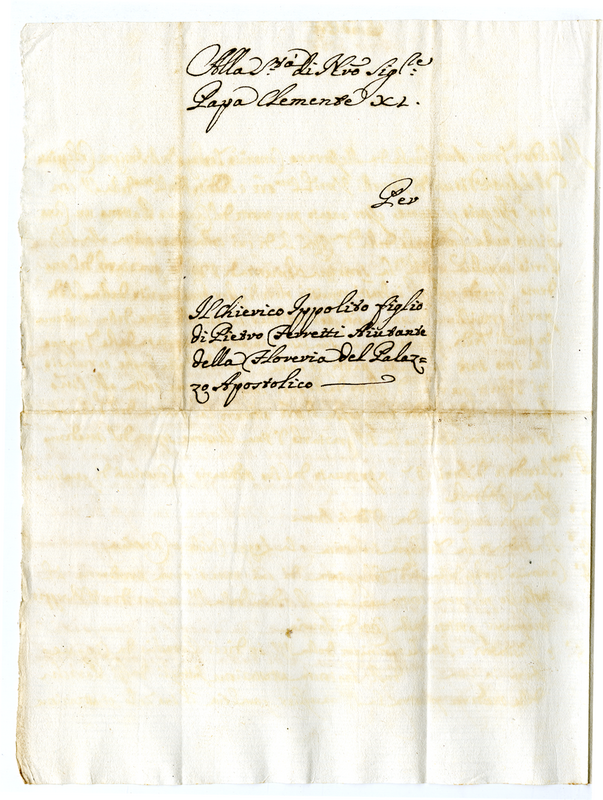 Alla S.tà di Nrõ Sig.re
Papa Clemente XI.
Per
Il Chierico Ippolito figlio
di Pietro Ferretti Aiutante
della Floreria del Palaz=
zo Apostolico